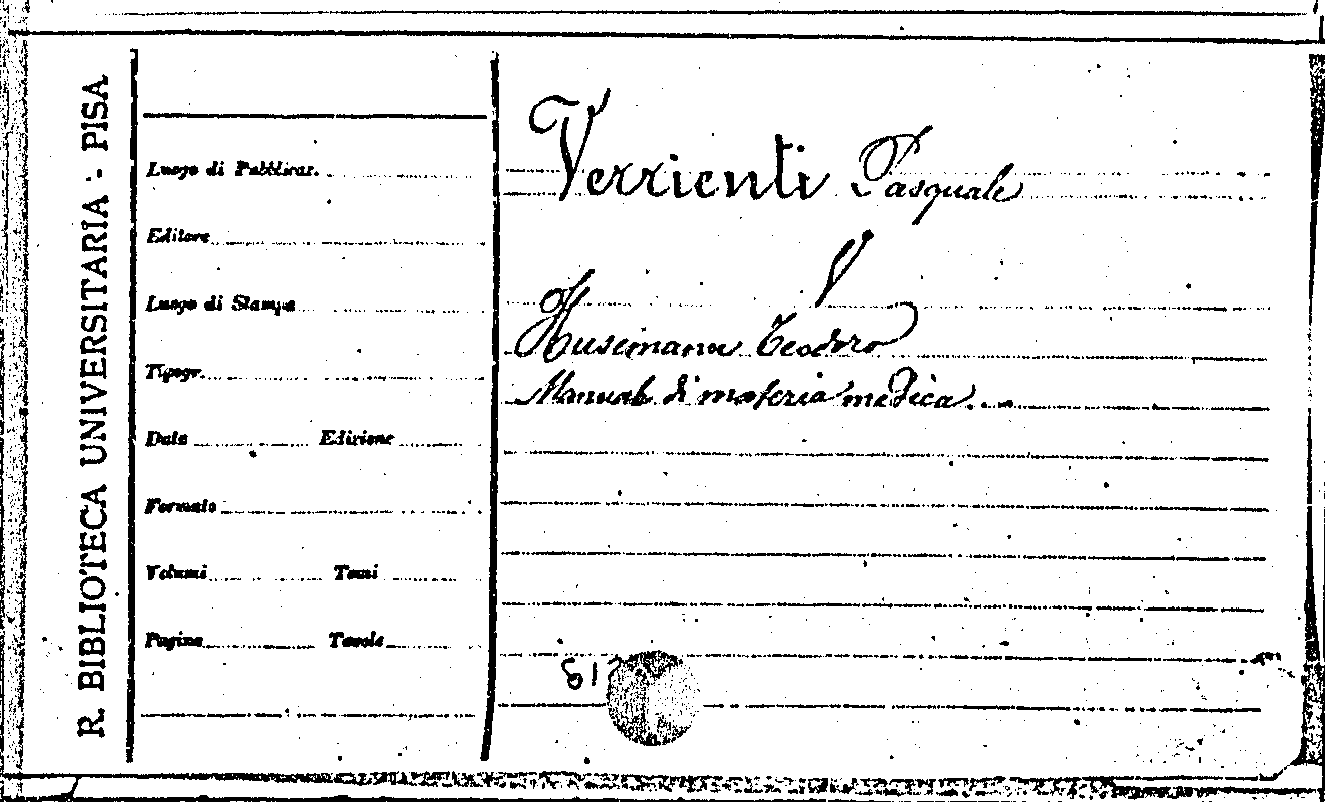 R. BIBLIOTECA UNIVERSITARIA - PISA
Luogo di Pubblicaz.
Editore
Luogo di Stampa
Tipogr.
Data Edizione
Formato
Volumi Tomi
Pagine Tavole
Verrienti Pasquale
V
Husemann Teodoro
Manuale di materia medica...